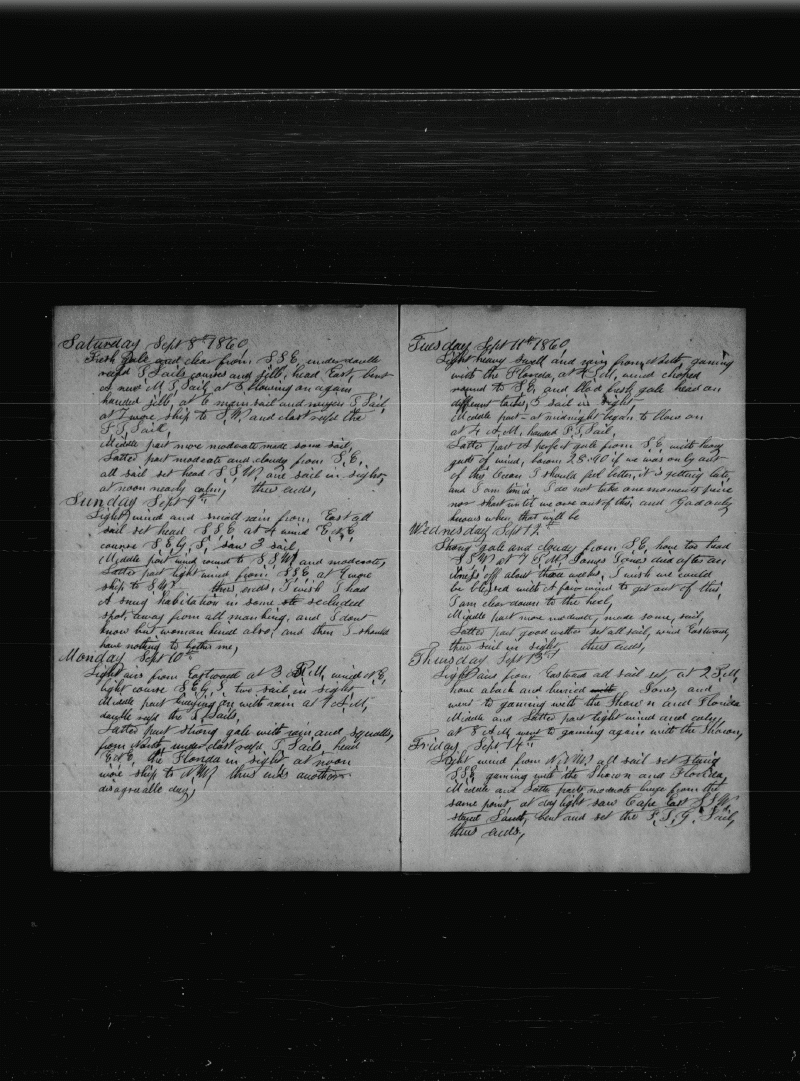 Saturday Sept 8th 1860
Fresh gale and clear from S.S.E. under double
reefd T. Sails courses and jibb, head East, bent
a new M. T. Sail, at 3 blowing on again
handed jibb, at 6 main sail and mizen T. Sail,
at 7 wore ship to S.W. and close reefd the
F. T. Sail,
Middle part more moderate made some sail,
Latter part moderate and cloudy from S.E.
all sail set head S.S.W. one sail in sight,
at noon nearly calm, thus ends,
Sunday Sept 9th
Light wind and small rain from East all
sail set head S.S.E. at 4 wind E.N.E.
course S.E. by S. saw 3 sail
Middle part wind round to S.S.W. and moderate,
Latter part light wind from S.S.E. at 9 wore
ship to S.W. thus ends, I wish I had
A snug habitation in some secluded
spot, away from all mankind, and I dont
know but woman kind also, and then I should
have nothing to bother me,
Monday Sept 10th
Light airs from Eastward at 3 P.M. wind N.E.
light course S.E. by S. two sail in sight
Middle part breezing on with rain at 4 A.M.
double reefd the T. Sails,
Latter part strong gale with rain and squalls,
from North, under close reefd T. Sails, head
E.N.E. the Florida in sight at noon
wore ship to N.W. thus ends another
disagreeable day,
Tuesday Sept 11th 1860
Light heavy swell and rain from gaming
with the Florida, at 4 P.M. wind chopped
round to S.E. and blew fresh gale head on
different tacks, 5 sail in sight,
Middle part at midnight began to blow on
at 4 A.M. handed F. T. Sail,
Latter part A perfect gale from S.E. with heavy
gusts of wind, barom 28.90 if we was only out
of this Ocean I should feel better, it is getting late,
and I am timid I do not take one moments peice
nor shant until we are out of this, and God only
knows when that will be
Wednesday Sept 12th
Strong gale and cloudy from S.E. hove too head
S.S.W. at 7 P.M. James Jones died after an
illness off about three weeks, I wish we could
be blessed with A fair wind to get out of this,
I am clear down to the heel,
Middle part more moderate, made some sail,
Latter part good wether set all sail, wind Eastward,
thus sail in sight, thus ends,
Thursday Sept 13th
Light airs from Eastward all sail set, at 2 P.M.
hove aback and buried Jones, and
went to gaming with the Sharon and Florida
Middle and Latter part light wind and calm,
at 8 A.M. went to gaming again with the Sharon,
Friday Sept 14th
Light wind from N.N.W. all sail set staring
S.S.E. gaming with the Sharon and Florida,
Middle and Latter parts moderate breeze from the
same point at day light saw Cape East S.S.W.
stayed bent and set the F. T. G. Sail,
thus ends,